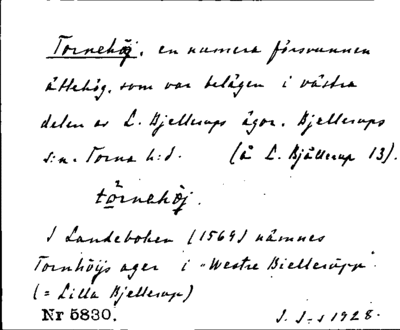 Tornehöj, en numera försvunnen
ättehög, som var belägen i västra
delen av L. Bjellerups ägor. Bjellerups
s:n. Torna h:d. (Å L. Bjällerup 13).
tòrnehöj.
I Landeboken (1569) nämnes
Tornhöÿs ager i "Westre Biellerüpp"
(= Lilla Bjellerup)
Nr 5830.
1928.